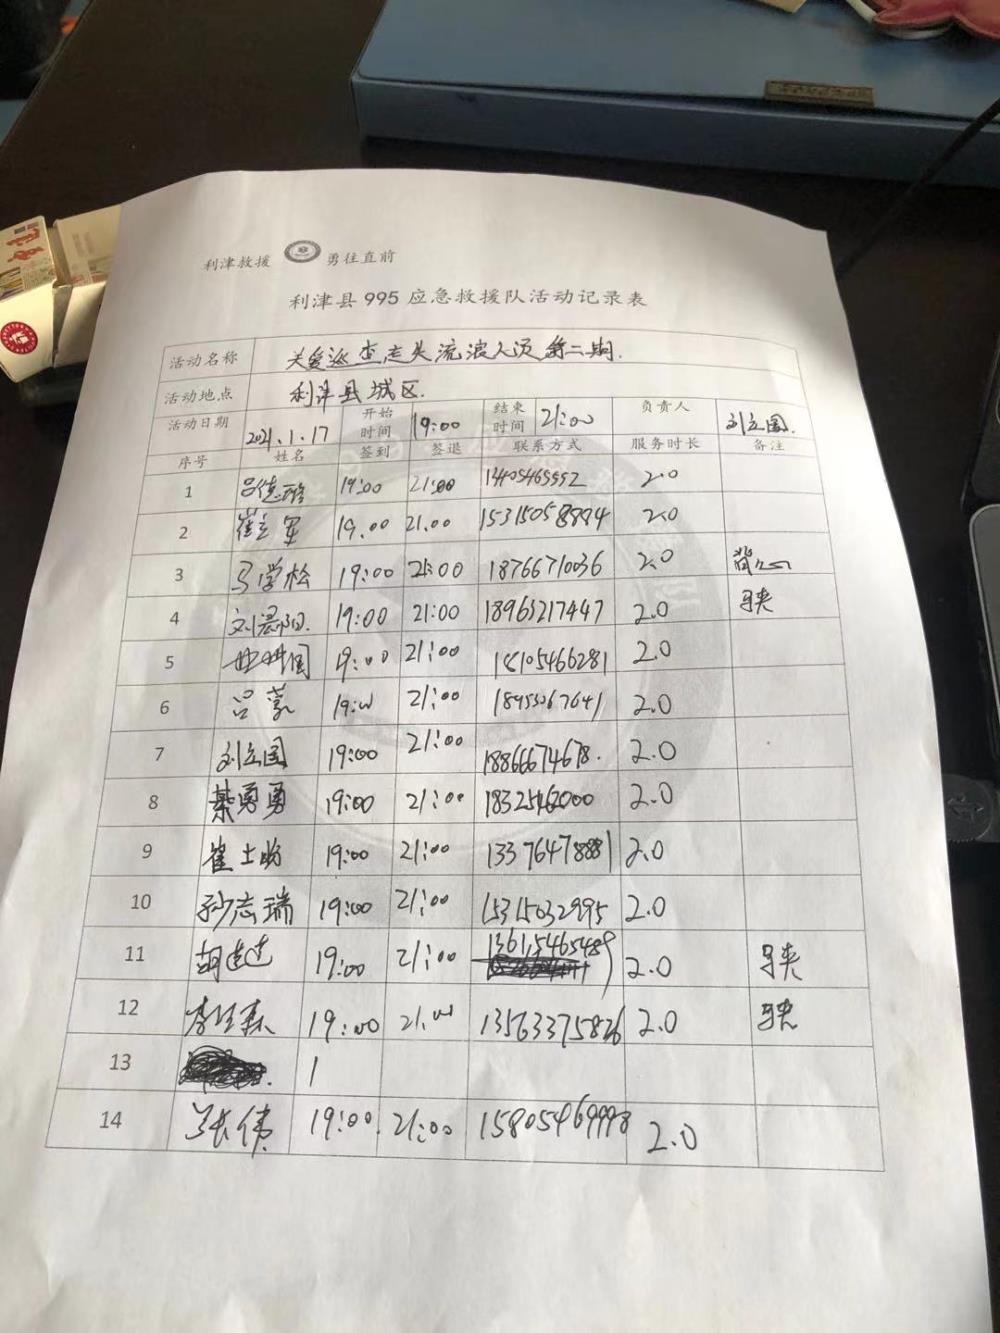 利津救援 勇往直前
利津县 995 应急救援队活动记录表
活动名称 关爱巡查走失流浪人员第二期.
活动地点 利津县城区.
活动日期 2021.1.17 开始时间 19:00 结束时间 21:00 负责人 刘立国.
序号 姓名 签到 签退 联系方式 服务时长 备注
1 吕德 19:00 21:00 13405465552 2.0
2 崔立军 19.00 21.00 15315058994 2.0
3 马学松 19:00 21:00 18766710036 2.0 背心
4 刘晨阳. 19:00 21:00 18963217447 2.0 马夹
5 19:00 21:00 18105466281 2.0
6 吕蒙 19:00 21:00 2.0
7 刘立国 19:00 21:00 18866674678. 2.0
8 綦勇勇 19:00 21:00 18325462000 2.0
9 崔 19:00 21:00 13376478881 2.0
10 孙志瑞 19:00 21:00 15315032995 2.0
11 胡连连 19:00 21:00 13615465489 2.0 马夹
12 李 19:00 21:00 13563375826 2.0 马夹
13
14 张伟 19:00 21:00 15805469998 2.0